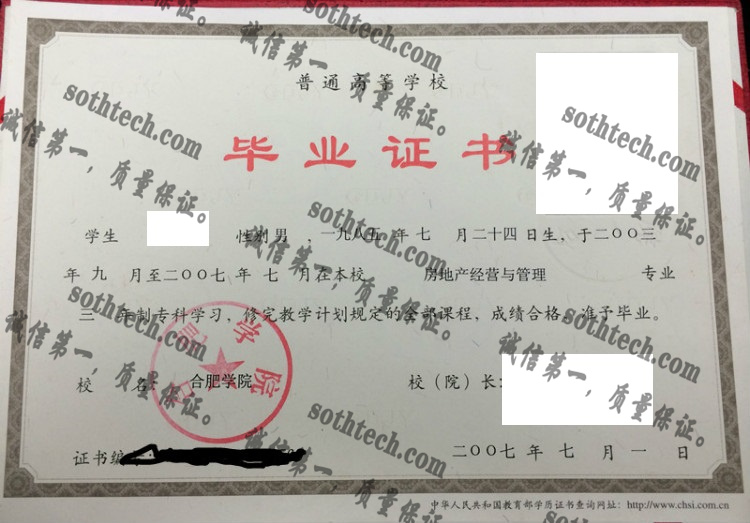 普通高等学校
毕业证书
学生 性别 男 ，一九八五 年 七 月二十四日生，于二〇〇三
年 九 月至二〇〇七 年 七 月在本校 房地产经营与管理 专业
三 年制专科学习，修完教学计划规定的全部课程，成绩合格，准予毕业。
校 名： 合肥学院 校（院）长：
证书编
二〇〇七 年 七 月 一 日
中华人民共和国教育部学历证书查询网址：http://www.chsi.com.cn
学院
sothtech.com
诚信第一，质量保证。
sothtech.com
诚信第一，质量保证。
sothtech.com
诚信第一，质量保证。
sothtech.com
诚信第一，质量保证。
sothtech.com
诚信第一，质量保证。
sothtech.com
诚信第一，质量保证。
sothtech.com
诚信第一，质量保证。